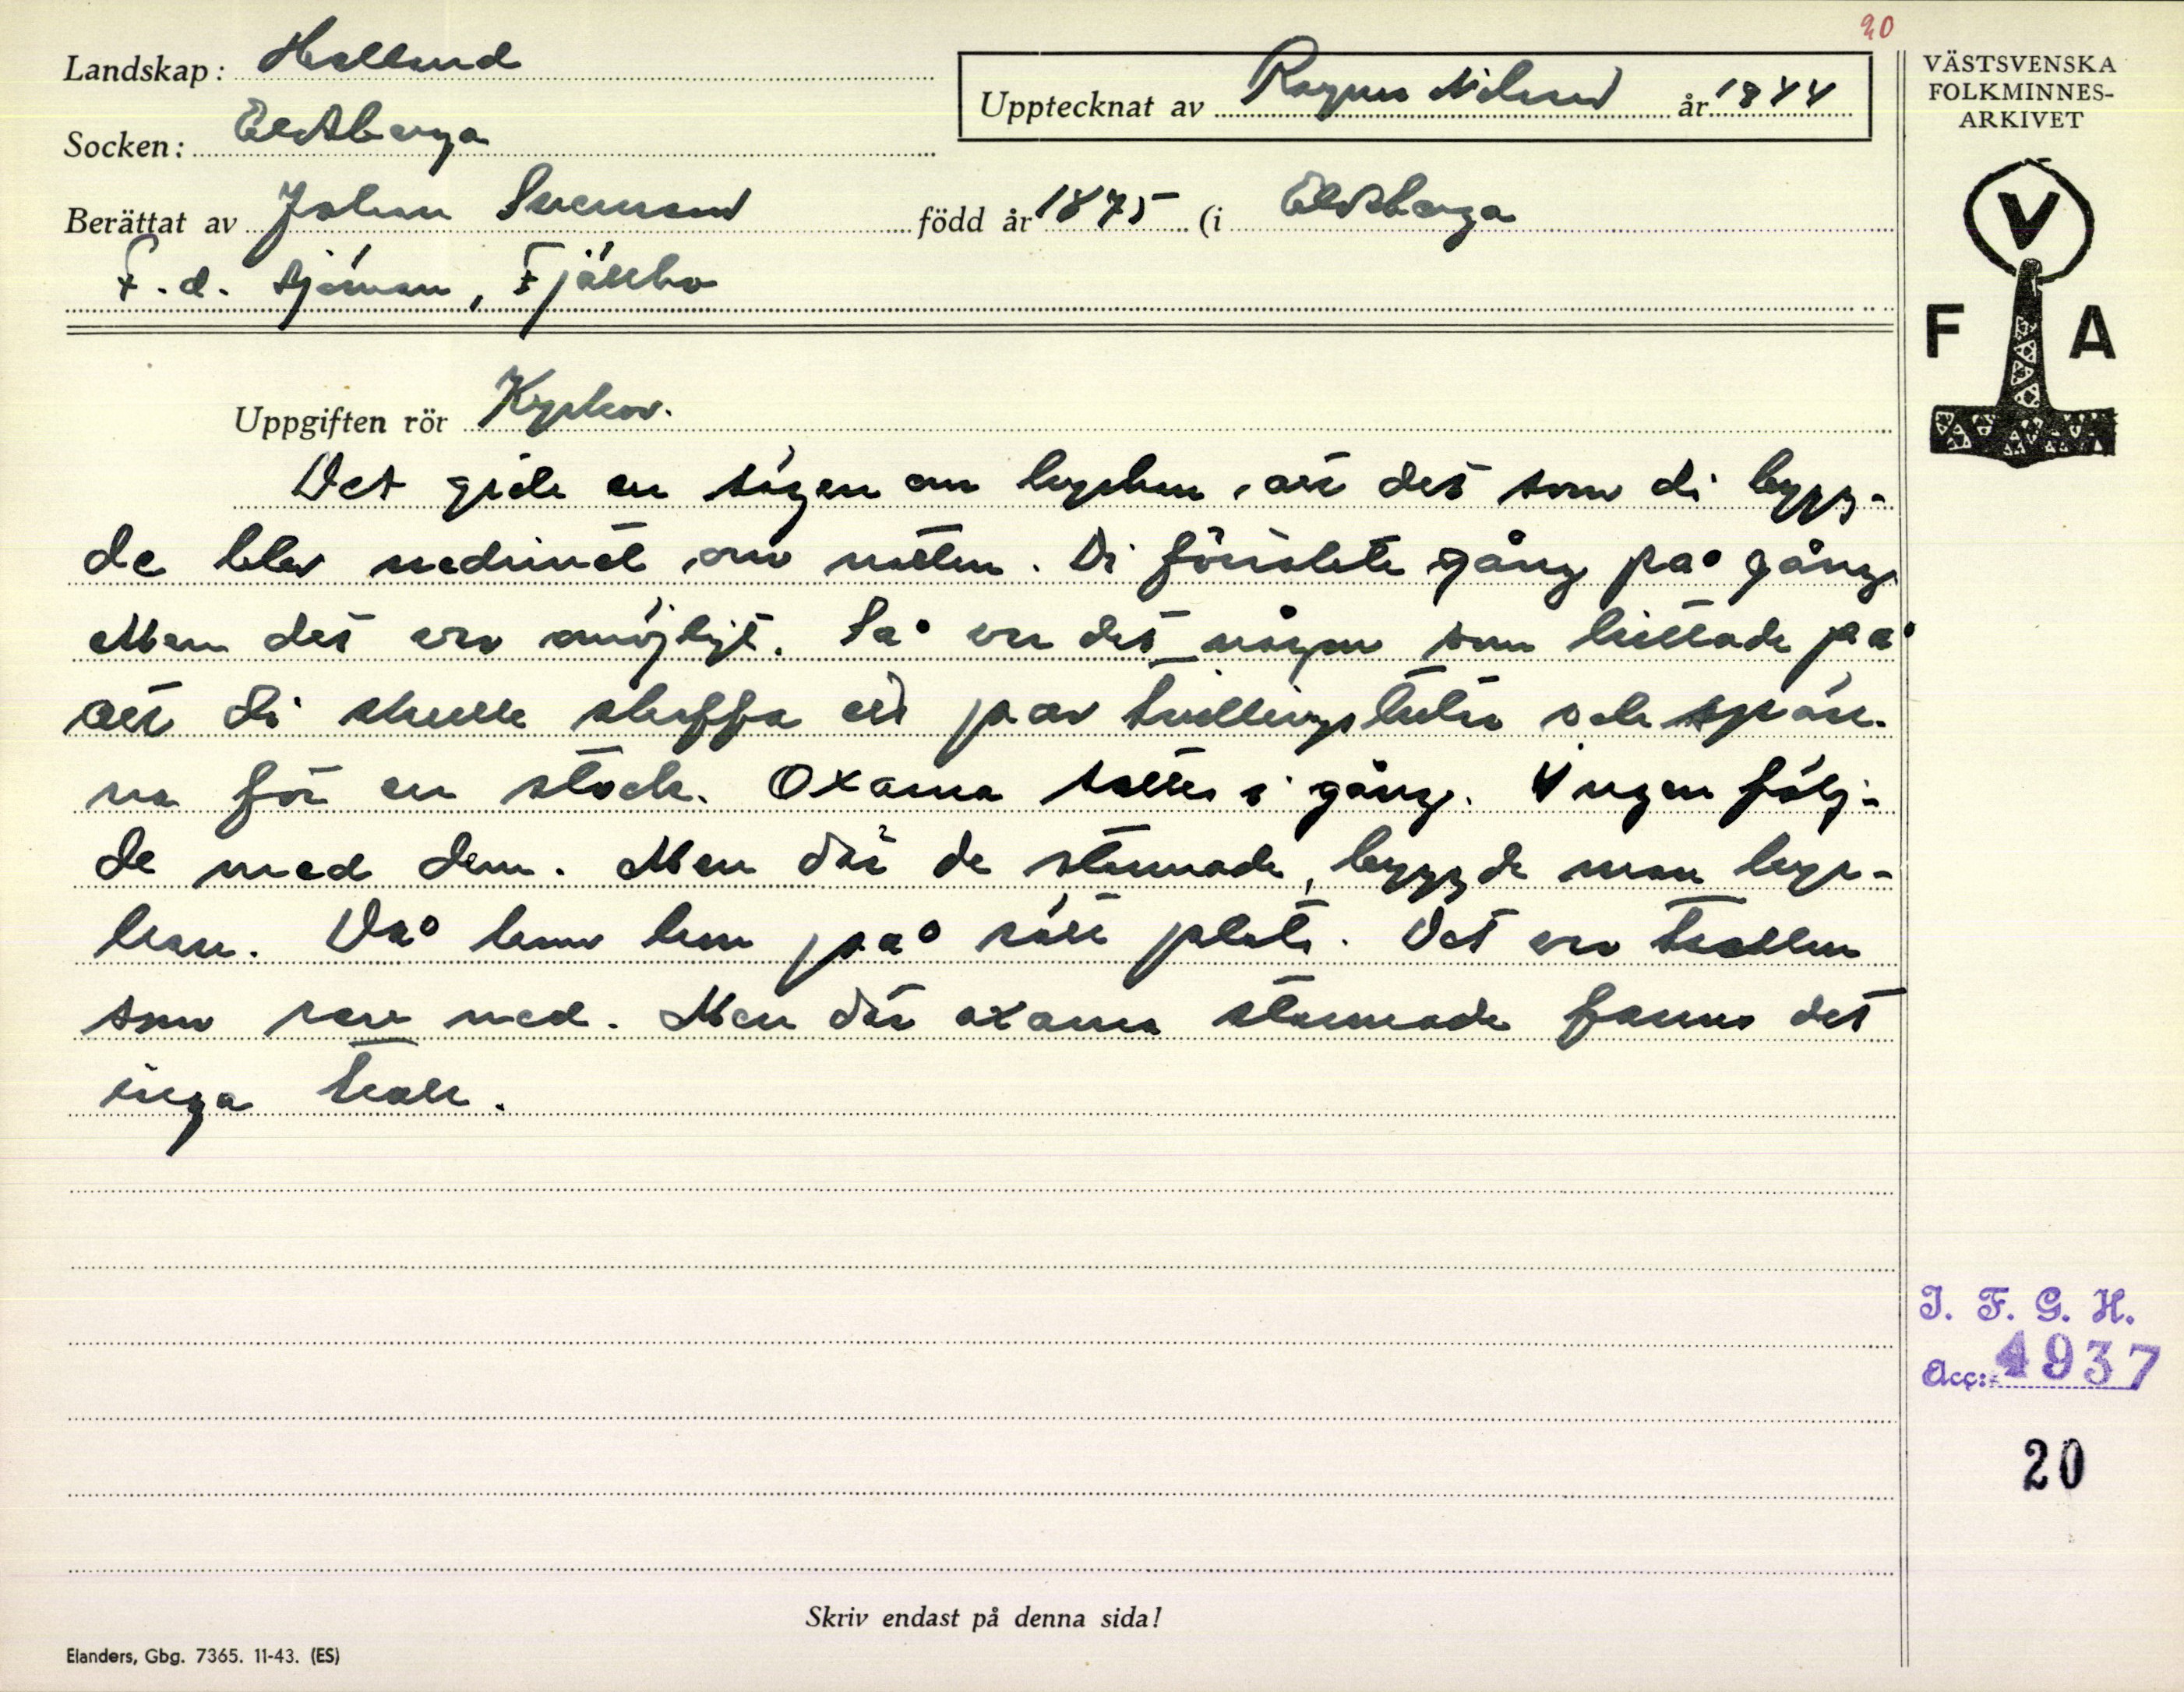 20
Landskap: Halland
Upptecknat av Ragnar Nilsson år 1944
VÄSTSVENSKA
FOLKMINNES-
ARKIVET
Socken: Eldsberga
Berättat av Johan Svensson född år 1875 (i Eldsberga
F.d. sjöman, Fjällbo
V
F A
Uppgiften rör Kyrkor.
Det gick en sägen om kyrkan, att det som di bygg-
de blev nedrivet om natten. Di försökte gång på gång
Men det var omöjligt. Så var det någon som hittade på
att di skulle skaffa ett par tvillingstutar och spän-
na för en stock. Oxarna sattes i gång. Ingen följ-
de med dem. Men där de stannade, byggde man kyr-
kan. Då kom han på rätt plats. Det var trollen
som rev ned. Men där oxarna stannade fanns det
inga troll.
I. F. G. H.
Acc: 4937
20
Skriv endast på denna sida!
Elanders, Gbg. 7365. 11-43. (ES)